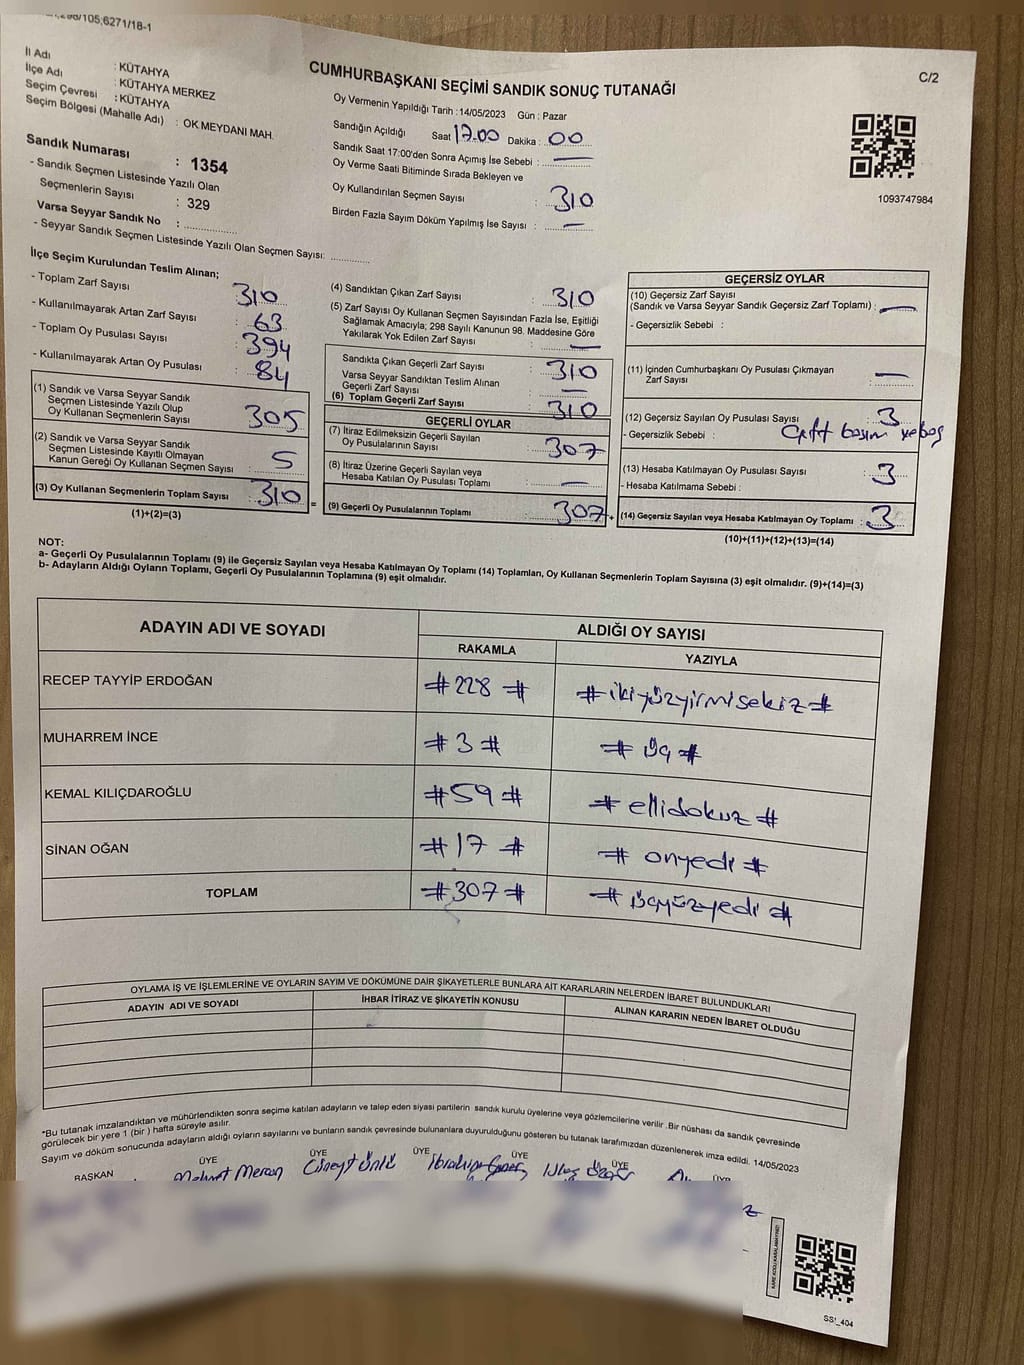 298/105;6271/18-1
C/2
İl Adı : KÜTAHYA
İlçe Adı : KÜTAHYA MERKEZ
Seçim Çevresi : KÜTAHYA
Seçim Bölgesi (Mahalle Adı) : OK MEYDANI MAH.
Sandık Numarası : 1354
- Sandık Seçmen Listesinde Yazılı Olan
Seçmenlerin Sayısı : 329
Varsa Seyyar Sandık No :
- Seyyar Sandık Seçmen Listesinde Yazılı Olan Seçmen Sayısı:
CUMHURBAŞKANI SEÇİMİ SANDIK SONUÇ TUTANAĞI
Oy Vermenin Yapıldığı Tarih : 14/05/2023 Gün : Pazar
Sandığın Açıldığı Saat 17.00 Dakika : 00
Sandık Saat 17:00'den Sonra Açımış İse Sebebi : —
Oy Verme Saati Bitiminde Sırada Bekleyen ve
Oy Kullandırılan Seçmen Sayısı : 310
Birden Fazla Sayım Döküm Yapılmış İse Sayısı : —
1093747984
İlçe Seçim Kurulundan Teslim Alınan;
- Toplam Zarf Sayısı : 310
- Kullanılmayarak Artan Zarf Sayısı : 63
- Toplam Oy Pusulası Sayısı : 394
- Kullanılmayarak Artan Oy Pusulası : 84
(1) Sandık ve Varsa Seyyar Sandık
Seçmen Listesinde Yazılı Olup
Oy Kullanan Seçmenlerin Sayısı : 305
(2) Sandık ve Varsa Seyyar Sandık
Seçmen Listesinde Kayıtlı Olmayan
Kanun Gereği Oy Kullanan Seçmen Sayısı : 5
(3) Oy Kullanan Seçmenlerin Toplam Sayısı : 310
(1)+(2)=(3)
(4) Sandıktan Çıkan Zarf Sayısı : 310
(5) Zarf Sayısı Oy Kullanan Seçmen Sayısından Fazla İse, Eşitliği
Sağlamak Amacıyla; 298 Sayılı Kanunun 98. Maddesine Göre
Yakılarak Yok Edilen Zarf Sayısı : —
Sandıkta Çıkan Geçerli Zarf Sayısı : 310
Varsa Seyyar Sandıktan Teslim Alınan
Geçerli Zarf Sayısı : —
(6) Toplam Geçerli Zarf Sayısı : 310
GEÇERLİ OYLAR
(7) İtiraz Edilmeksizin Geçerli Sayılan
Oy Pusulalarının Sayısı : 307
(8) İtiraz Üzerine Geçerli Sayılan veya
Hesaba Katılan Oy Pusulası Toplamı : —
(9) Geçerli Oy Pusulalarının Toplamı : 307
GEÇERSİZ OYLAR
(10) Geçersiz Zarf Sayısı
(Sandık ve Varsa Seyyar Sandık Geçersiz Zarf Toplamı) : —
- Geçersizlik Sebebi :
(11) İçinden Cumhurbaşkanı Oy Pusulası Çıkmayan
Zarf Sayısı : —
(12) Geçersiz Sayılan Oy Pusulası Sayısı : 3
- Geçersizlik Sebebi : çift basım
(13) Hesaba Katılmayan Oy Pusulası Sayısı : 3
- Hesaba Katılmama Sebebi :
(14) Geçersiz Sayılan veya Hesaba Katılmayan Oy Toplamı : 3
(10)+(11)+(12)+(13)=(14)
NOT:
a- Geçerli Oy Pusulalarının Toplamı (9) ile Geçersiz Sayılan veya Hesaba Katılmayan Oy Toplamı (14) Toplamları, Oy Kullanan Seçmenlerin Toplam Sayısına (3) eşit olmalıdır. (9)+(14)=(3)
b- Adayların Aldığı Oyların Toplamı, Geçerli Oy Pusulalarının Toplamına (9) eşit olmalıdır.
ADAYIN ADI VE SOYADI ALDIĞI OY SAYISI
RAKAMLA YAZIYLA
RECEP TAYYİP ERDOĞAN #228# #ikiyüzyirmisekiz#
MUHARREM İNCE #3# #üç#
KEMAL KILIÇDAROĞLU #59# #ellidokuz#
SİNAN OĞAN #17# #onyedi#
TOPLAM #307# #üçyüzyedi#
OYLAMA İŞ VE İŞLEMLERİNE VE OYLARIN SAYIM VE DÖKÜMÜNE DAİR ŞİKAYETLERLE BUNLARA AİT KARARLARIN NELERDEN İBARET BULUNDUKLARI
ADAYIN ADI VE SOYADI İHBAR İTİRAZ VE ŞİKAYETİN KONUSU ALINAN KARARIN NEDEN İBARET OLDUĞU
*Bu tutanak imzalandıktan ve mühürlendikten sonra seçime katılan adayların ve talep eden siyasi partilerin sandık kurulu üyelerine veya gözlemcilerine verilir .Bir nüshası da sandık çevresinde
görülecek bir yere 1 (bir ) hafta süreyle asılır.
Sayım ve döküm sonucunda adayların aldığı oyların sayılarını ve bunların sandık çevresinde bulunanlara duyurulduğunu gösteren bu tutanak tarafımızdan düzenlenerek imza edildi. 14/05/2023
BAŞKAN ÜYE ÜYE ÜYE ÜYE ÜYE ÜYE
Mehmet Meran Cüneyt Ünlü İbrahim
SS!_404